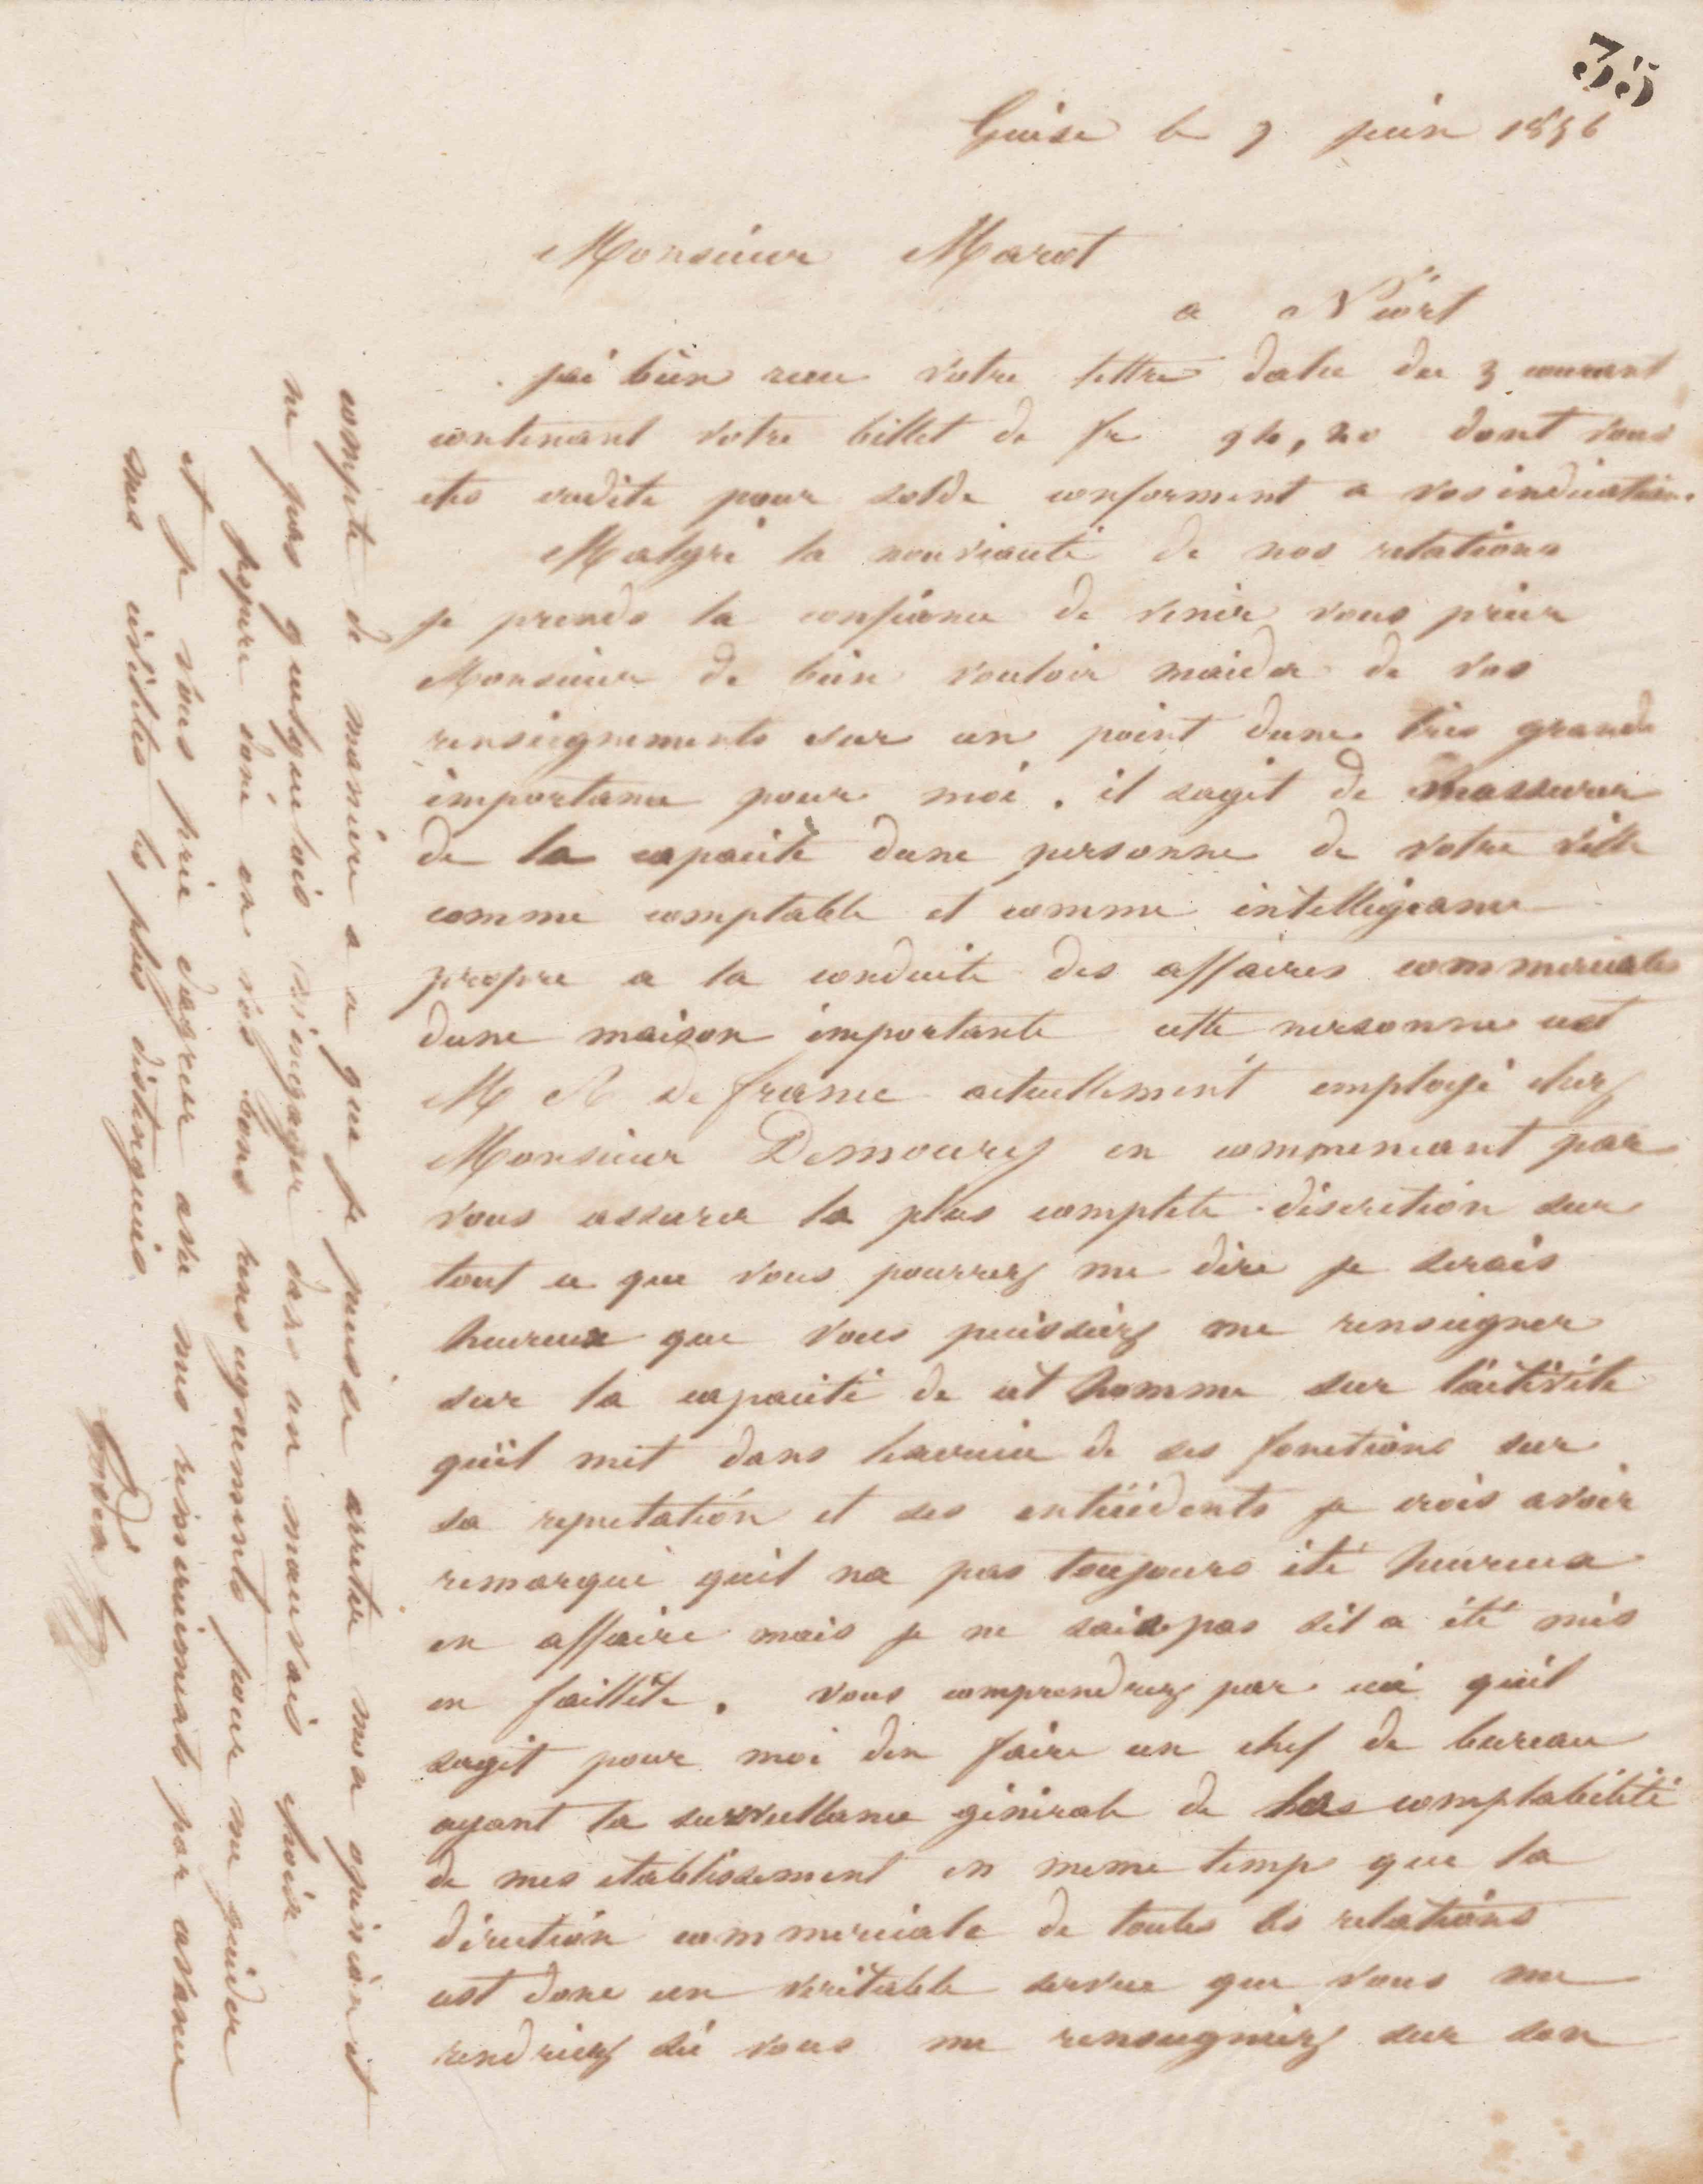 35
Guise le 9 juin 1856
Monsieur Marot
a Niort
jai bien recu votre lettre datee du 3 courant
contenant votre billet de fr dont vous
etes credite pour solde conforment a vos indications
Malgré la nouveauté de nos relations
je prends la confiance de venir vous prier
Monsieur de bien vouloir maider de vos
renseignements sur un point dune très grande
importance pour moi . il sagit de massurer
de la capacité dune personne de votre ville
comme comptable et comme intelligeance
propre a la conduite des affaires commerciales
dune maison importante cette personne est
M A Defrance actuellement employé chez
Monsieur Demoury en commencant par
vous assurer la plus complete discretion sur
tout ce que vous pourrez me dire je serais
heureux que vous puissiez me renseigner
sur la capacité de cet homme sur lactivité
quil met dans lexercice de ses fonctions sur
sa reputation et ses antécédents je crois avoir
remarqué quil na pas toujours été heureux
en affaire mais je ne sais pas sil a été mis
en faillite . vous comprendrez par ceci quil
sagit pour moi den faire un chef de bureau
ayant la surveillance générale de la comptabilité
de mes etablissement en meme temps que la
direction commerciale de toutes les relations
cest donc un veritable service que vous me
rendriez si vous me renseigniez sur son
compte de manière a ce que je puisse arreter mon opinion et
ne pas quelque fois mengager dans un mauvais choix
jespere donc en vos bons renseignements pour me guider
et je vous prie dagreer avec mes remerciments par avance
mes civilités les plus distinguées
Godin